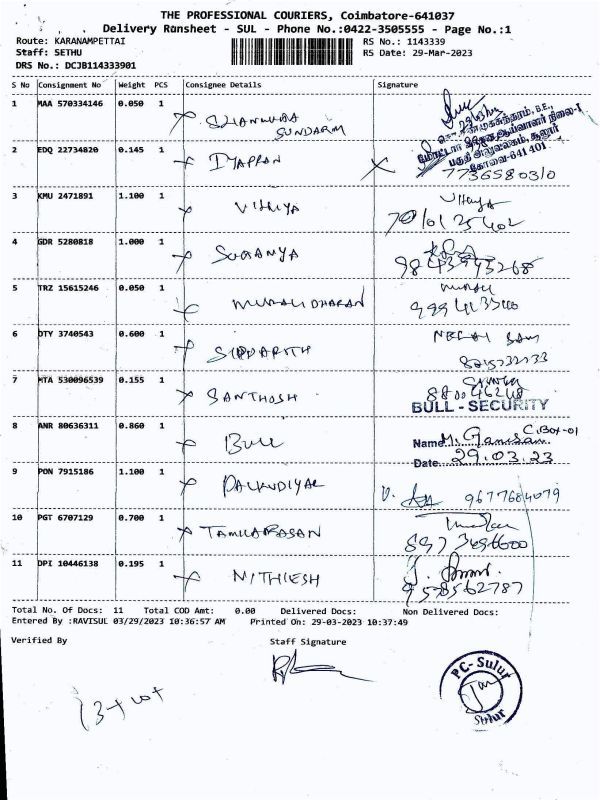 THE PROFESSIONAL COURIERS, Coimbatore-641037
Delivery Runsheet - SUL - Phone No.:0422-3505555 - Page No.:1
Route: KARANAMPETTAI RS No.: 1143339
Staff: SETHU RS Date: 29-Mar-2023
DRS No.: DCJB114333901
S No Consignment No Weight PCS Consignee Details Signature
1 MAA 570334146 0.050 1 SHANMUGA
SUNDARM
மோட்டார்
கோவை-641 401
2 EDQ 22734820 0.145 1 IYAPPAN
7736580310
3 KMU 2471891 1.100 1 VIHUYA
4 GDR 5280818 1.000 1 SUGANYA
5 TRZ 15615246 0.050 1 MURALIDHARAN
6 DTY 3740543 0.600 1 SIDDARTH
7 MTA 530096539 0.155 1 SANTHOSH
BULL - SECURITY
8 ANR 80636311 0.860 1 BULL
Name M. Ganesan
Date 29.03.23
9 PON 7915186 1.100 1 PALKUDIYAL 9677684079
10 PGT 6707129 0.700 1 TAMILARASAN
11 DPI 10446138 0.195 1 NITHIESH
9578562787
Total No. Of Docs: 11 Total COD Amt: 0.00 Delivered Docs: Non Delivered Docs:
Entered By :RAVISUL 03/29/2023 10:36:57 AM Printed On: 29-03-2023 10:37:49
Verified By Staff Signature
PC-Sulur
Sulur